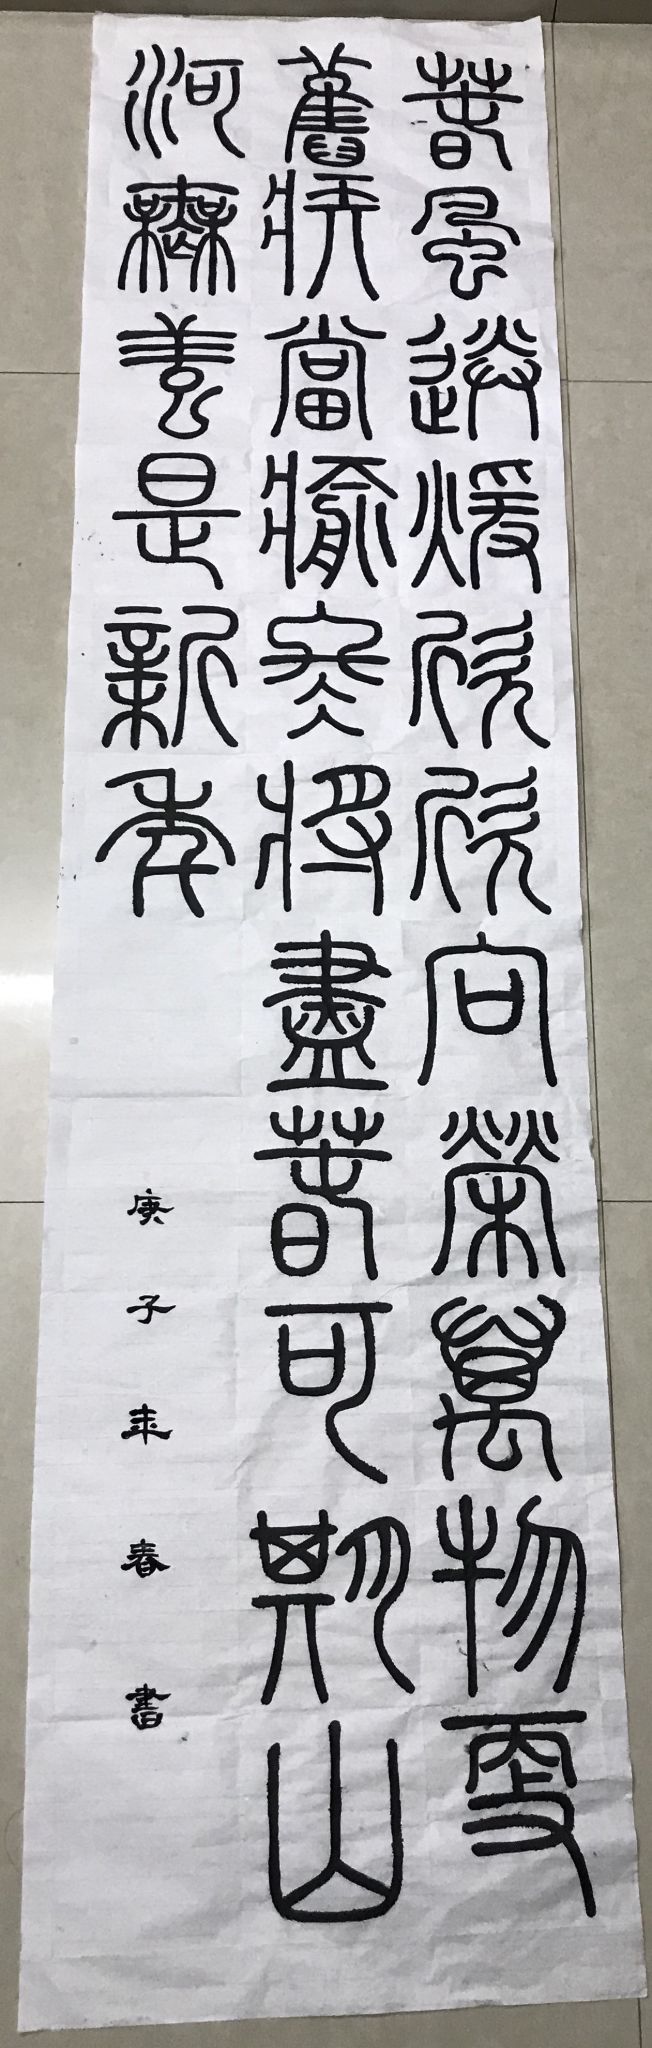 春風送煖欣欣向榮萬物更
舊疾當瘉冬將盡春可期山
河無恙是新年
庚子年春書